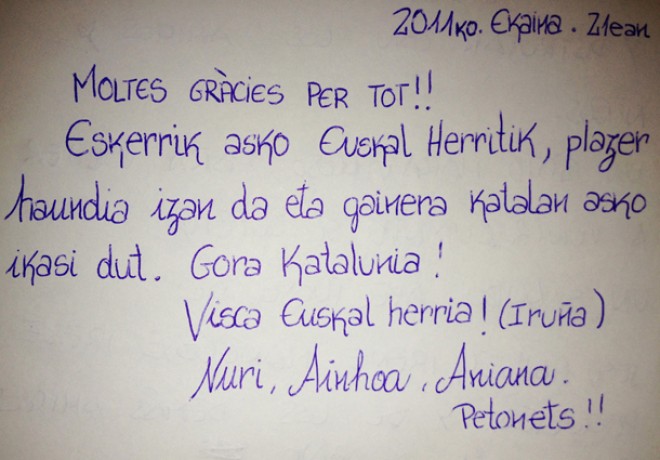 2011ko. Ekaina. 21ean
Moltes gràcies per tot!!
Eskerrik asko Euskal Herritik, plazer
haundia izan da eta gainera katalan asko
ikasi dut. Gora Katalunia!
Visca Euskal herria! (Iruña)
Nuri, Ainhoa, Aniana.
Petonets!!